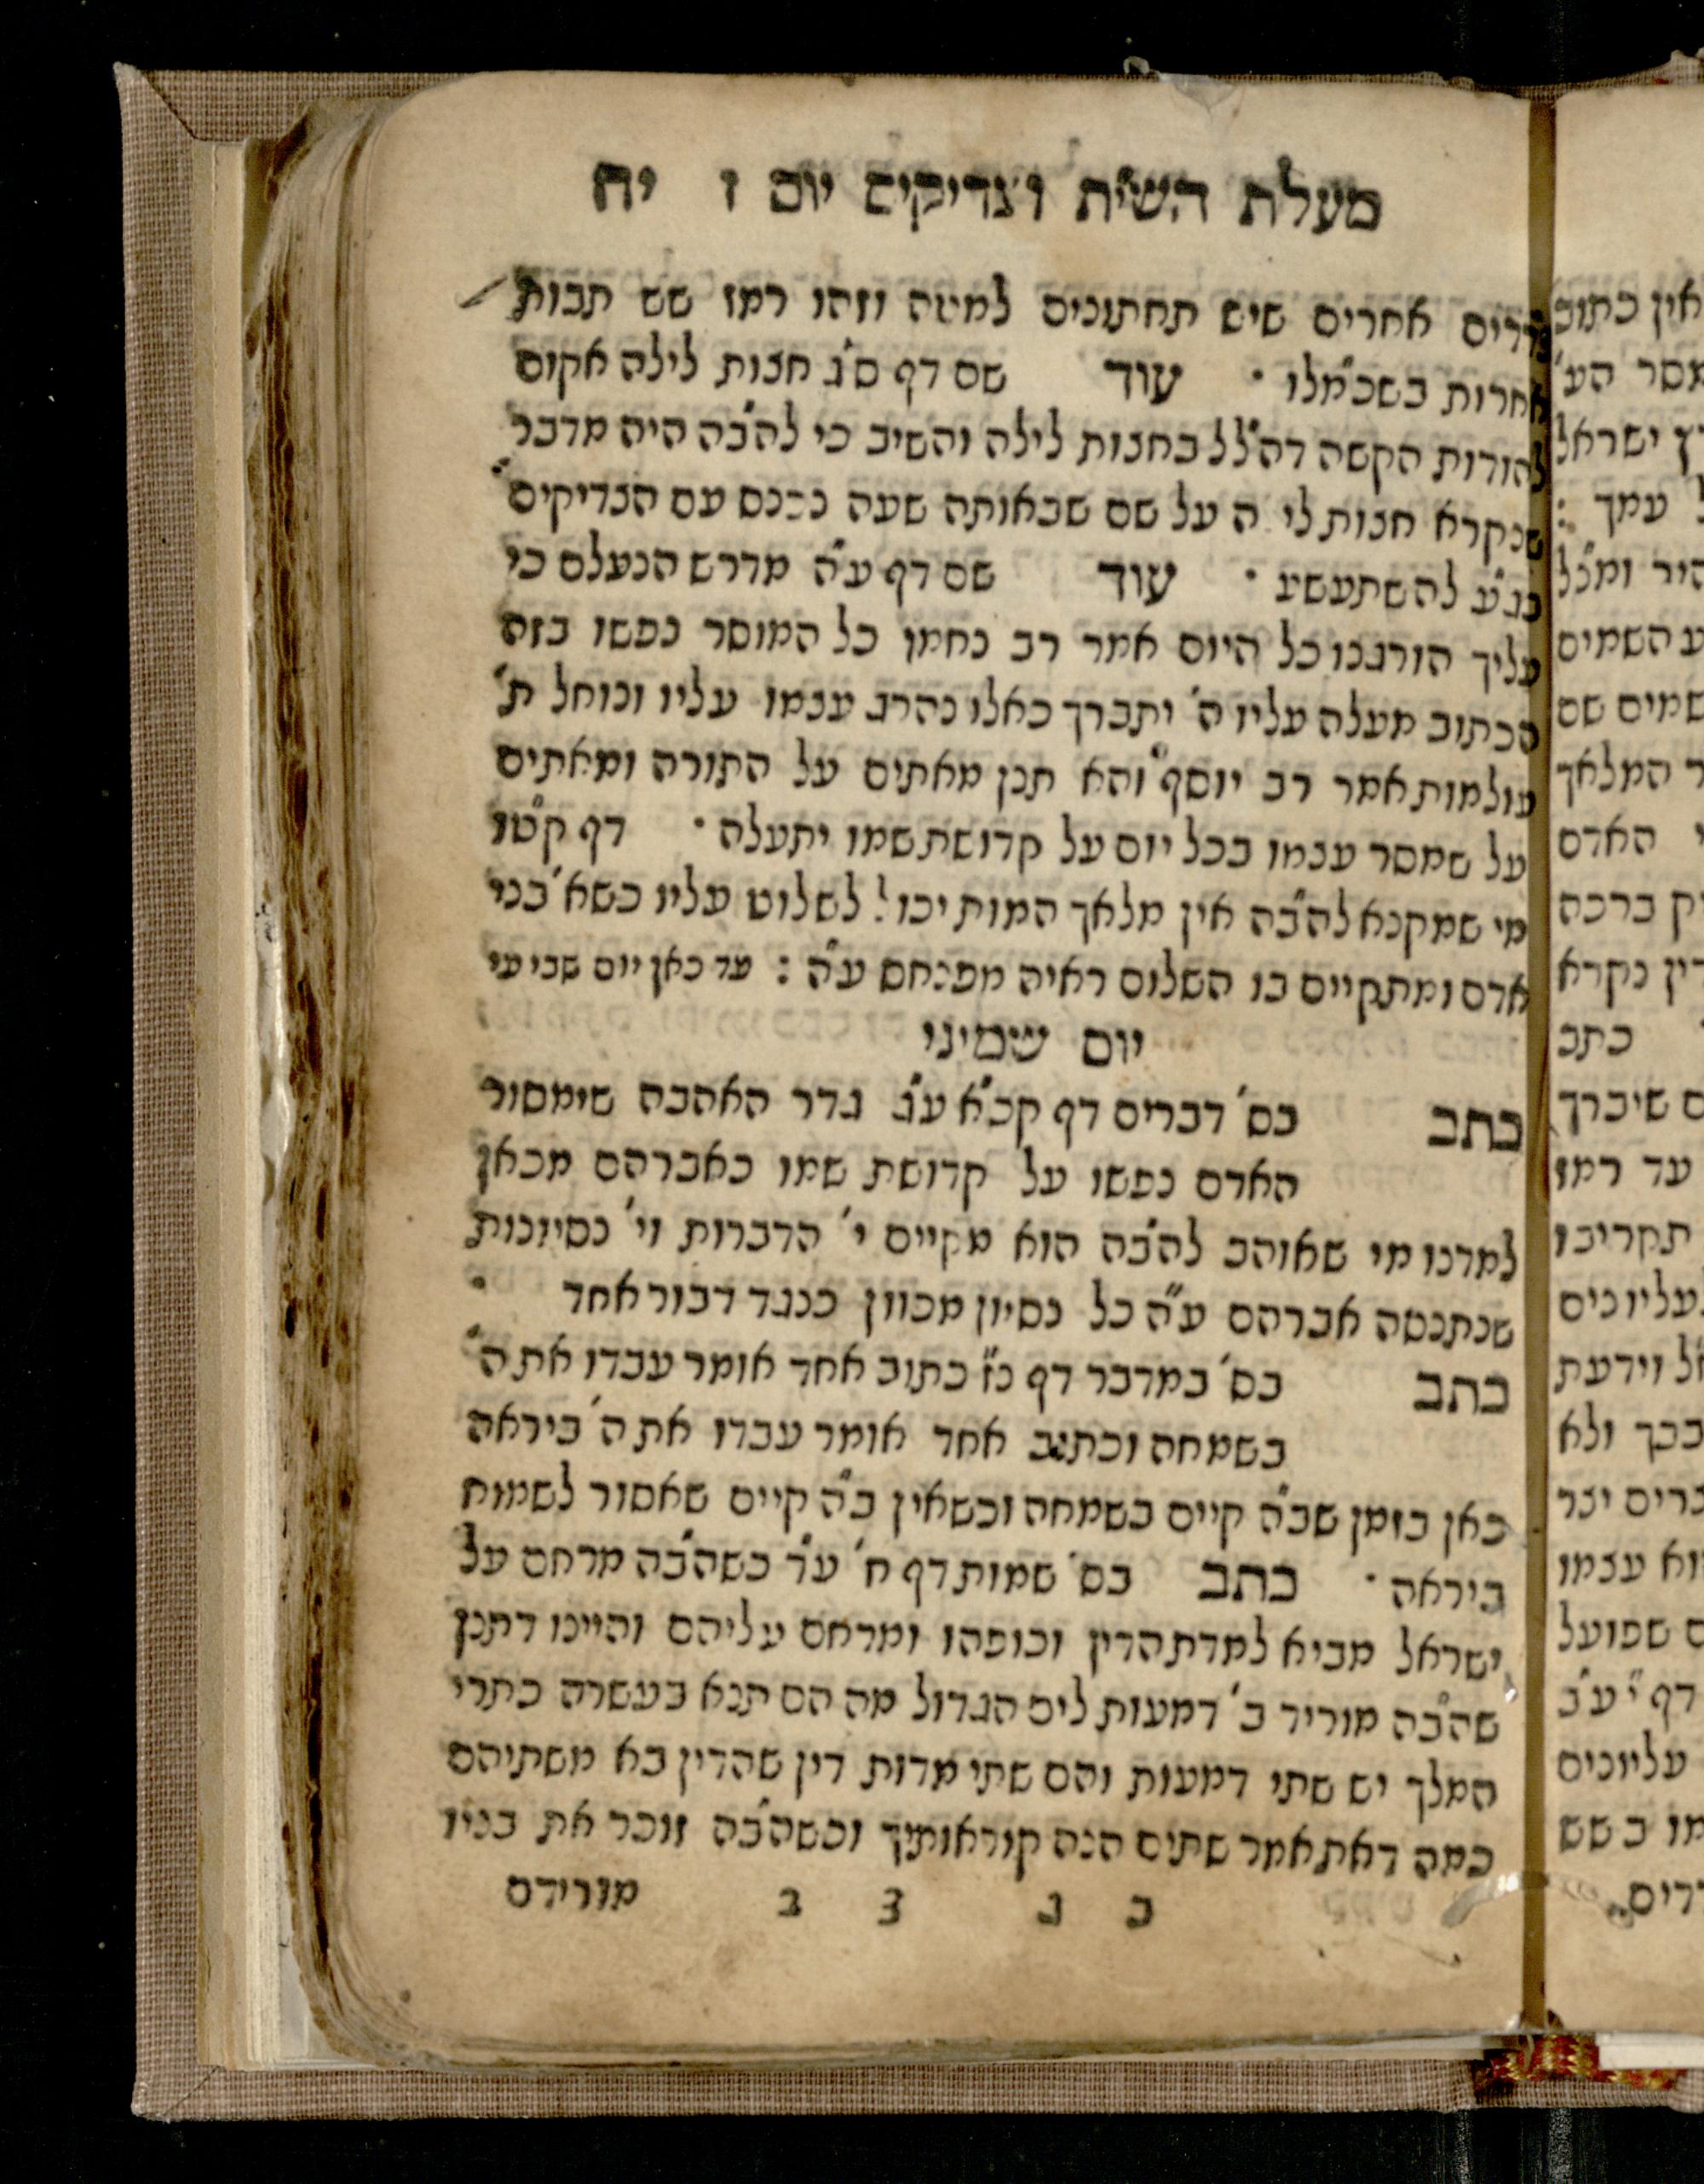 מעלת השי״ת וצדיקים יום ז יח
סדרים אחרים שיש תחתונים למטה וזהו רמז שש תבות
אחרות בשכ״מלו · עוד שם דף ס״ג חצות לילה אקום
להודות הקשה דה״לל בחצות לילה והשיב כי להב״ה היה מדבר
שנקרא חצות לי ה על שם שבאותה שעה נכנס עם הצדיקים
בג״ע להשתעשע · עוד שם דף ע״ה מדרש הנעלם כי
עליך הורגנו כל היום אמר רב נחמן כל המוסר נפשו בזה
הכתוב מעלה עליו ה' יתברך כאלו נהרג עצמו עליו ונוחל ת'
עולמות אמר רב יוסף והא תנן מאתים על התורה ומאתים
על שמסר עצמו בכל יום על קדושת שמו יתעלה · דף קט״ו
מי שמקנא להב״ה אין מלאך המות יכול לשלוט עליו כשא' בני
אדם ומתקיים בו השלום ראיה מפנחס ע״ה : עד כאן יום שביעי
יום שמיני
כתב בס' דברים דף קכ״א ע״ג גדר האהבה שימסור
האדם נפשו על קדושת שמו כאברהם מכאן
למדנו מי שאוהב להב״ה הוא מקיים י' הדברות וי' נסיונות
שנתנסה אברהם ע״ה כל נסיון מכוון כנגד דבור אחד ·
כתב בס' במדבר דף נ״ז כתוב אחד אומר עבדו את ה'
בשמחה וכתוב אחד אומר עבדו את ה' ביראה
כאן בזמן שב״ה קיים בשמחה וכשאין ב״ה קיים שאסור לשמוח
ביראה · כתב בס' שמות דף ח' ע״ד כשהב״ה מרחם על
ישראל מביא למדת הדין וכופהו ומרחם עליהם והיינו דתנן
שהב״ה מוריד ב' דמעות לים הגדול מה הם תנא בעשרה כתרי
המלך יש שתי דמעות והם שתי מדות דין שהדין בא משתיהם
כמה דאת אמר שתים הנה קוראותיך וכשהב״ה זוכר את בניו
כ ג צ ב מורידם
אין כתוב
ישראל
עמך :
השמים
שמים שם
המלאך
האדם
ברכה
נקרא
כתב
שיברך
עד רמז
תקריבו
וידעת
ולא
עצמו
שפועל
עליונים